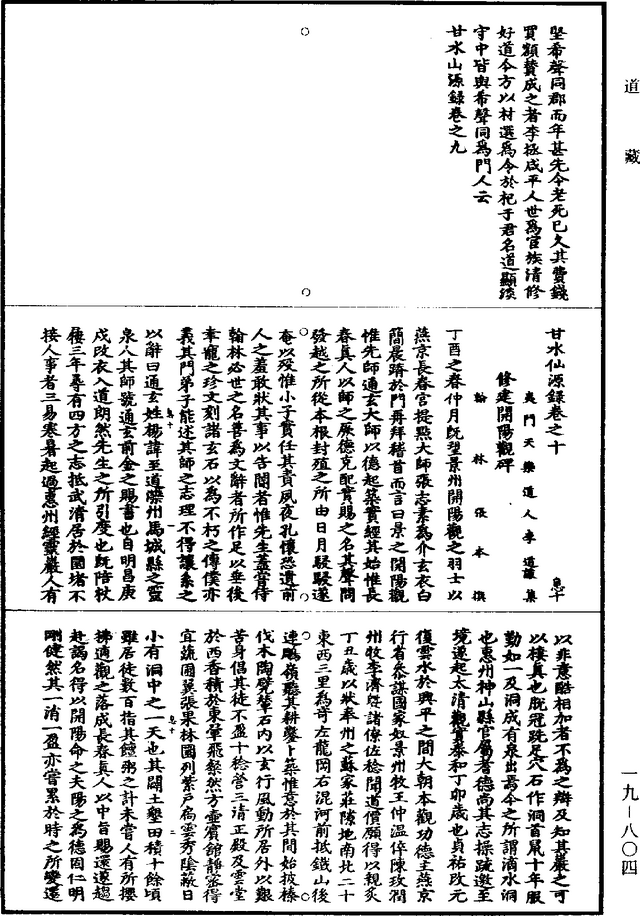 道藏
堅希聲同郡而年甚先今老死已久其費錢
買額贊成之者李極咸平人世為官族清修
好道今方以村選為令於杞于君名道顯淡
守中皆與希聲同為門人云
甘水山源錄卷之九
甘水仙源錄卷之十 息十
夷門天樂道人李道謙集
修建開陽觀碑
翰林張本撰
丁酉之春仲月既望景州開陽觀之羽士以
燕京長春宮提點大師張志素為介玄衣白
簡晨躋於門再拜稽首而言曰景之開陽觀
惟先師通玄大師以德起築實經其始惟長
春真人以師之厥德克配實賜之名其聲聞
發越之所從本根封殖之所由日月駸駸遂
奄以歿惟小子實任其責夙夜孔懷恐遺前
人之羞敢狀其事以告聞者惟先生蓋嘗侍
翰林必世之名善為文辭者所作足以垂後
幸寵之珍文刻諸玄石以為不朽之傳僕亦
義其門弟子能述其師之志理不得讓系之
以辭曰通玄姓楊諱至道灤州馬城縣之靈
泉人其師號通玄前金之賜書也自明昌庚
戌改衣入道朗然先生之所引度也既陪杖
屨三年尋有四方之志抵武清居於圜堵不
接人事者三易寒暑起過惠州經靈巖人有
以非意酷相加者不為之辯及知其巖之可
以棲真也脫冠跣足穴石作洞首尾十年服
勤如一及洞成有泉出焉今之所謂滴水洞
也惠州神山縣官屬耆德尚其志操疏邀至
境遂起太清觀實泰和丁卯歲也貞祐改元
復雲水於興平之間大朝本觀功德主燕京
行省參謀國家奴景州牧王仲溫倅陳玫潤
州牧李濟暨諸僚佐稔聞道價願得以親炙
丁丑歲以狀奉州之蘇家莊隙地南北二十
東西三里為寄左龍岡右混河前抵鐵山後
連鵬嶺聽其耕鑿卜築惟意於其間始披榛
伐木陶甓輦石內以玄行風動所居外以艱
苦身倡其徒不盈十稔營三清正殿及雲堂
於西香積於東翬飛粲然方壼賓館靜密得
宜蔬圃蓂張果林園列紫戶扃雲秀陰蔽日
小有洞中之一天也其闢土墾田積十餘頃
雖居徒數百指其饘粥之計未嘗人有所攖
拂適觀之落成長春真人以中旨賜還邀趨
赴謁名得以開陽命之夫陽之為德固仁明
剛健然其一消一盈亦嘗累於時之所變遷
息十 一
息十 二
一九-八〇四